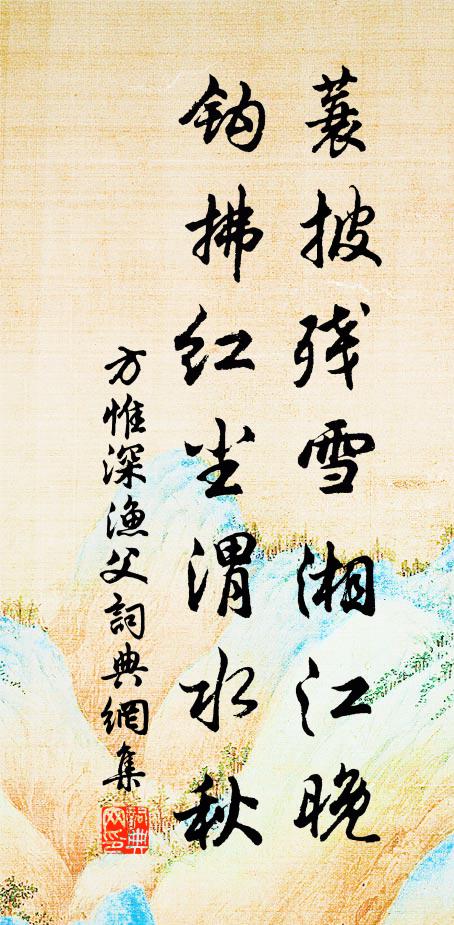 蓑披残雪湘江晚
钩拂红尘渭水秋
方惟深渔父詞典網集
詞典網印